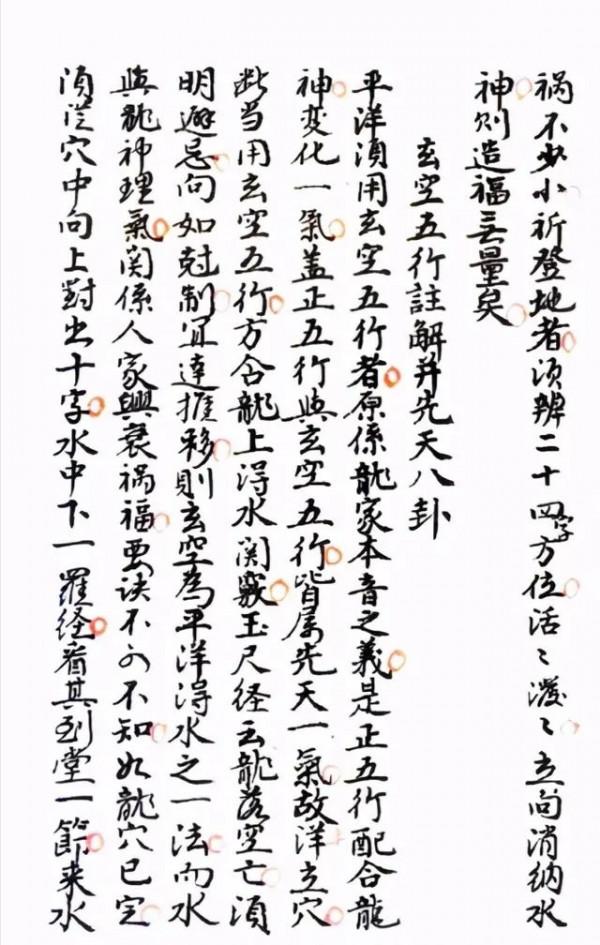 祸不少小祈登地者须辨二十四字方位活〻泼〻立向消纳水
神则造福无量矣
玄空五行註解并先天八卦
平洋须用玄空五行者原係龍家本音之義是正五行配合龍
神变化一氣盖正五行與玄空五行皆属先天一氣故洋立穴
此当用玄空五行方合龍上得水関竅玉尺経云龍落空亡须
明避忌向如尅制宜達推移则玄空為平洋得水之一法而水
與龍神理氣関係人家興衰祸福要诀不可不知如龍穴已定
须従穴中向上對出十字水中下一羅経看其到堂一節来水